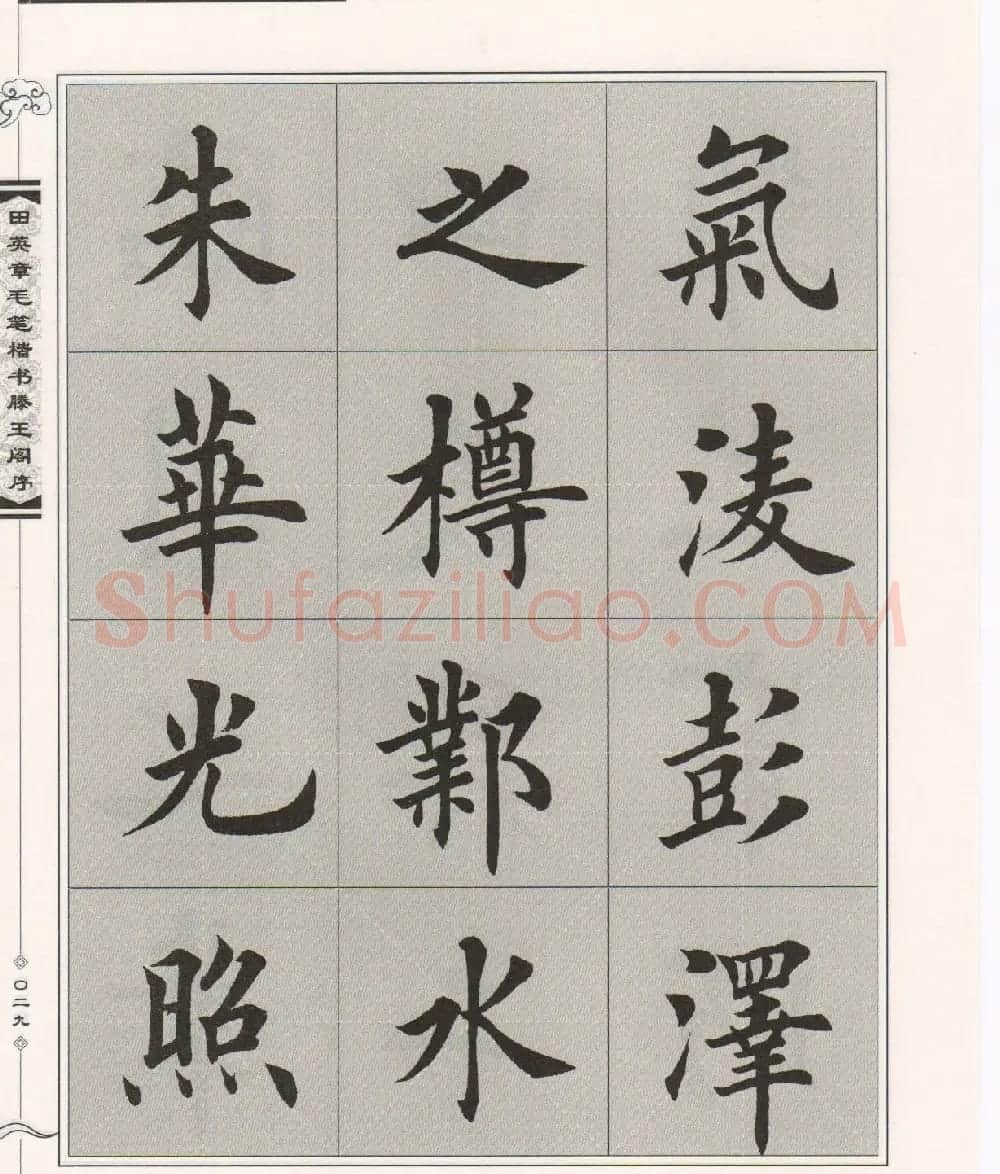 氣淩彭澤
之樽鄴水
朱華光照
田英章毛笔楷书滕王阁序
〇二九
Shufaziliao.COM